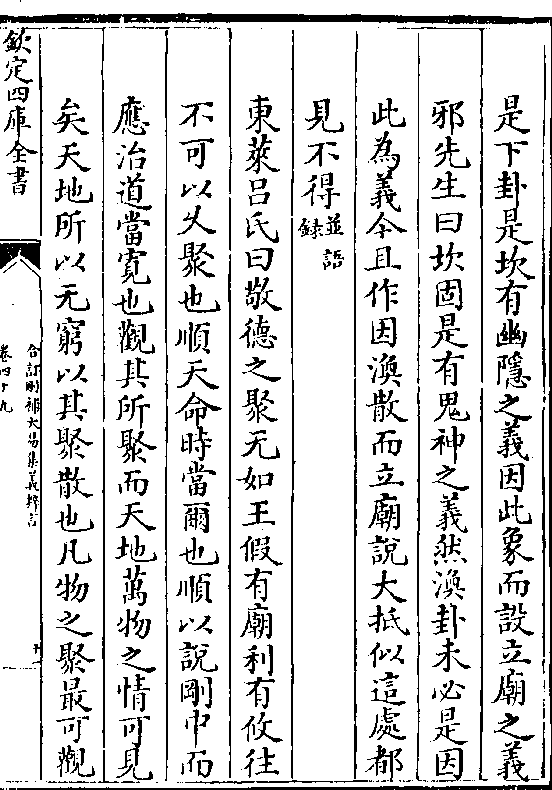 是下卦是坎有幽隱之義因此象而設立廟之義
邪先生曰坎固是有鬼神之義然渙卦未必是因
此為義今且作因渙散而立廟說大抵似這處都
見不得並語錄
東萊呂氏曰敬德之聚无如王假有廟利有攸往
不可以乆聚也順天命時當爾也順以說剛中而
應治道當寛也觀其所聚而天地萬物之情可見
矣天地所以无窮以其聚散也凡物之聚最可觀
欽定四庫全書
合訂刪補大易集義粹言
卷四十九